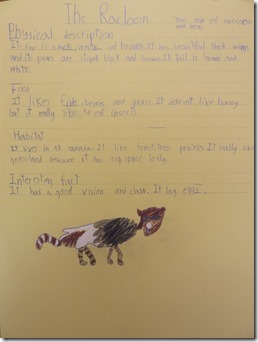 The Racloon
The mix of raccoon
and loon
Physical description
It's fur is black, white and brown. It has beautiful black wings
and its paws are striped black and brown. It's tail is brown and
white.
Food
It likes fish, berries and nuts. It doesn't like honey
but it really likes to eat insects.
Habitat
It lives in canada. It like territories prairies. It really like
grassland because it has big space to fly.
Interesting fact
It has a good vision and claws. It lay eggs.